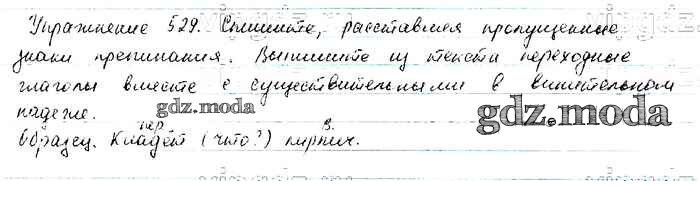 Упражнение 529. Спишите, расставляя пропущенные
знаки препинания. Выпишите из текста переходные
глаголы вместе с существительными в винительном
падеже.
gdz.moda
gdz.moda
пер. в.
Образец. Кладёт (что?) кирпич.